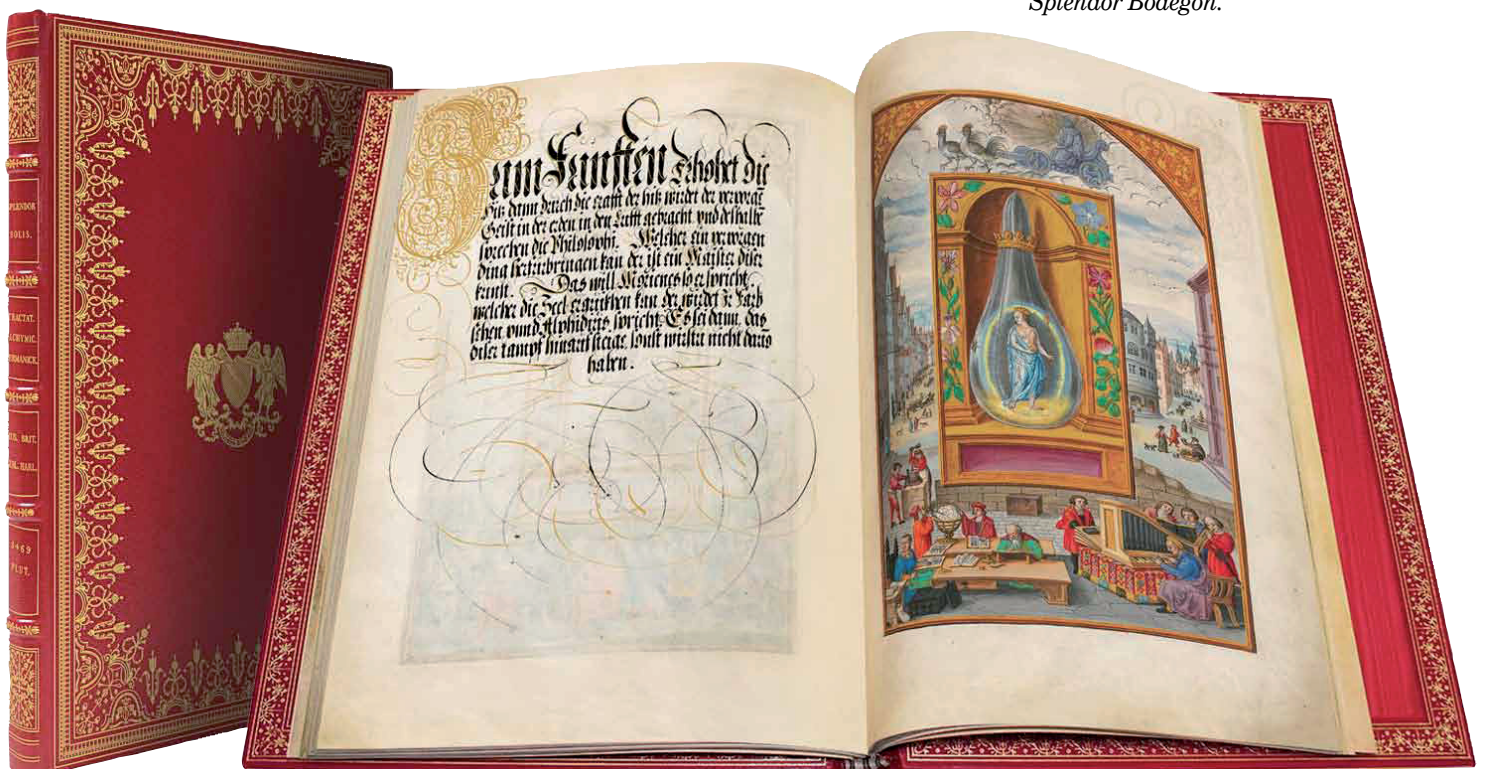 Splendor Bodegon.
SPLENDOR
SOLIS.
TRACTAT.
GERMANICE.
MUS. BRIT.
BIBL. HARL.
3469
PLUT.
Zum Fünften Erhohet die
Hitz dann durch die crafft der hitz wirdet der
Geist in der erden in den Lufft gebracht vnd deshalbē
sprechen die Philosophi. Welcher ein verporgen
ding herfurbringen kan der ist ein Maister diser
kunst. Das will Morienes so er spricht,
welcher die Seel erquikhen kan der wirdet Farb
sehen vnnd Alphidius spricht: Es sei dann, das
diser tampf hinauf steige, sonst wirstu nicht daraus
haben.